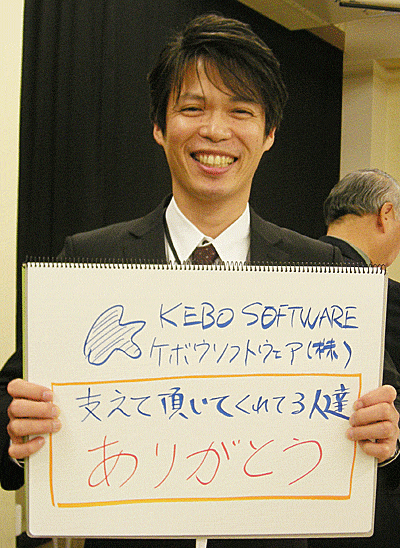 KEBO SOFTWARE
ケボウソフトウェア(株)
支えて頂いてくれてる人達
ありがとう